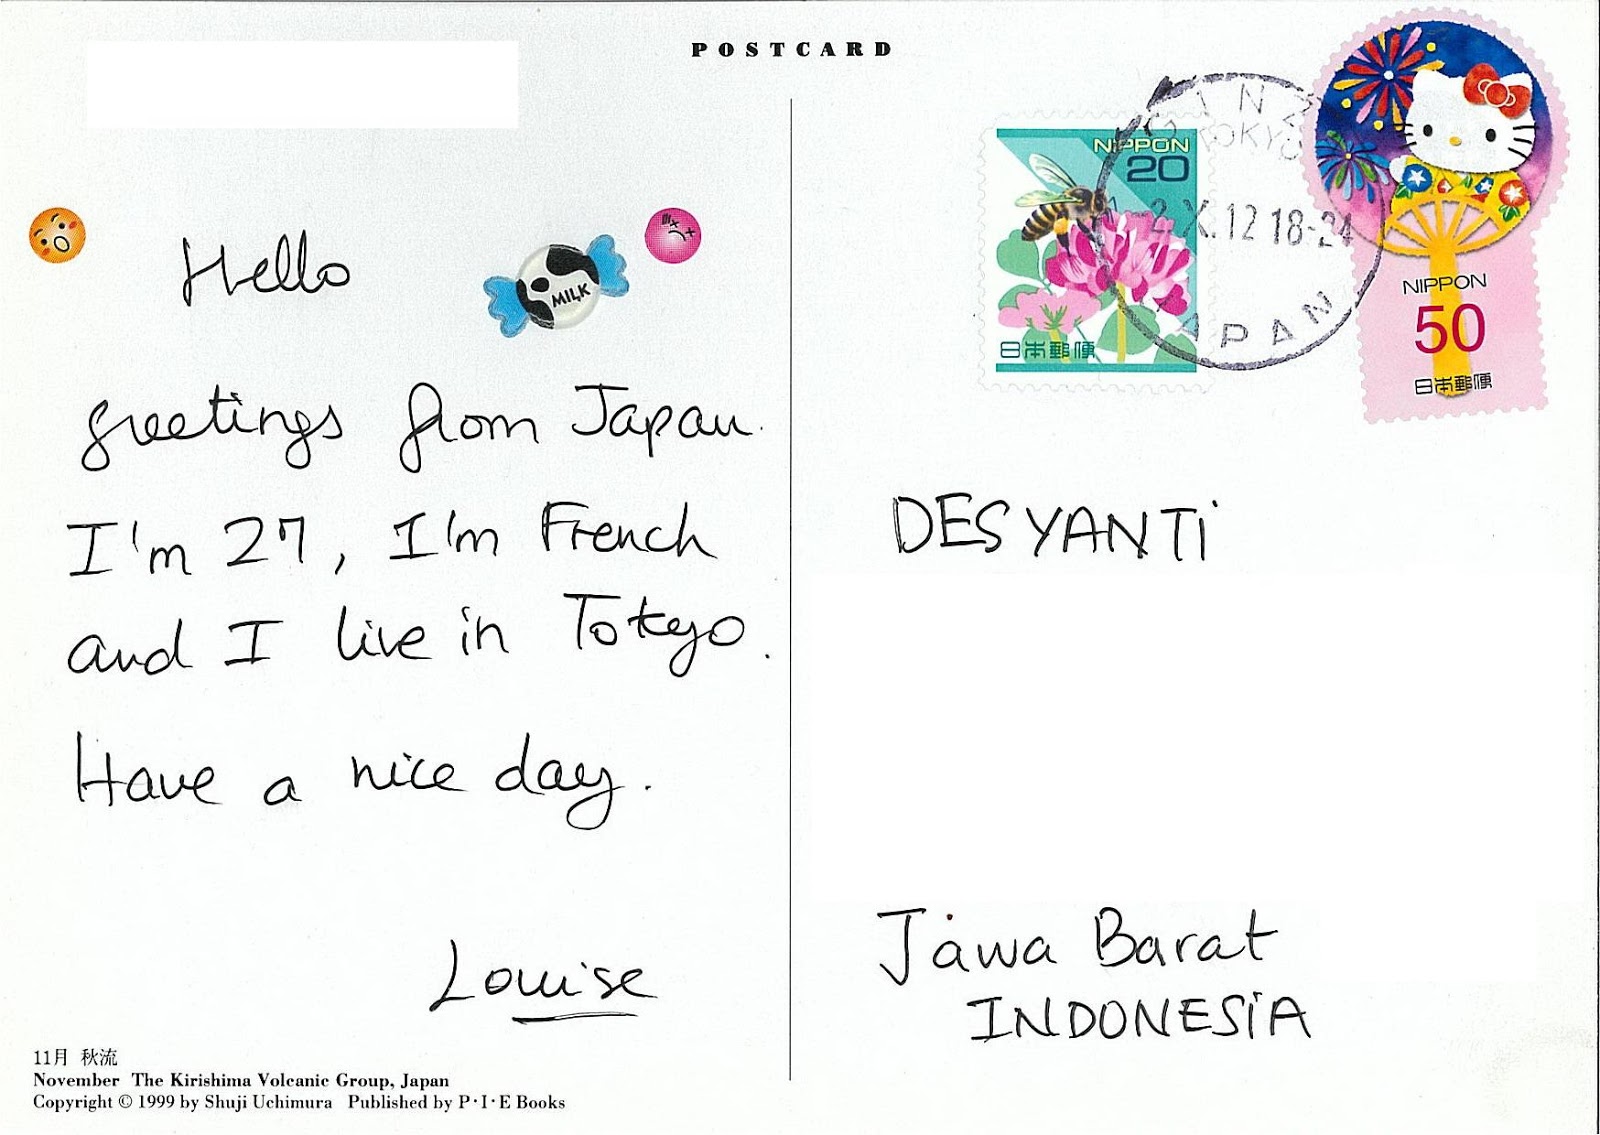 POSTCARD
Hello
MILK
greetings from Japan.
I'm 27, I'm French
and I live in Tokyo.
Have a nice day.
Louise
11月 秋流
November The Kirishima Volcanic Group, Japan
Copyright © 1999 by Shuji Uchimura Published by P·I·E Books
NIPPON
20
日本郵便
TOKYO
2.X.12 18-24
JAPAN
NIPPON
50
日本郵便
DESYANTi
Jawa Barat
INDONESiA